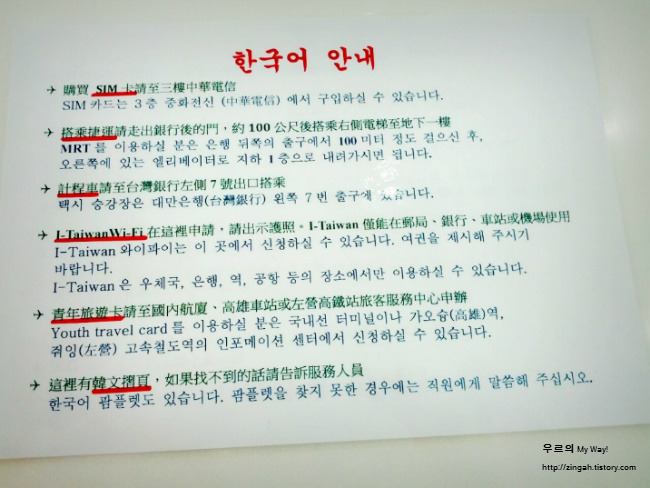 한국어 안내
✈ 購買 SIM 卡請至三樓中華電信
SIM 카드는 3 층 중화전신 (中華電信) 에서 구입하실 수 있습니다.
✈ 搭乘捷運請走出銀行後的門，約 100 公尺後搭乘右側電梯至地下一樓
MRT 를 이용하실 분은 은행 뒤쪽의 출구에서 100 미터 정도 걸으신 후,
오른쪽에 있는 엘리베이터로 지하 1 층으로 내려가시면 됩니다.
✈ 計程車請至台灣銀行左側 7 號出口搭乘
택시 승강장은 대만은행(台灣銀行) 왼쪽 7 번 출구에 있습니다.
✈ I-TaiwanWi-Fi 在這裡申請，請出示護照。I-Taiwan 僅能在郵局、銀行、車站或機場使用
I-Taiwan 와이파이는 이 곳에서 신청하실 수 있습니다. 여권을 제시해 주시기
바랍니다.
I-Taiwan 은 우체국, 은행, 역, 공항 등의 장소에서만 이용하실 수 있습니다.
✈ 青年旅遊卡請至國內航廈、高雄車站或左營高鐵站旅客服務中心申辦
Youth travel card 를 이용하실 분은 국내선 터미널이나 가오슝(高雄)역,
쭤잉(左營) 고속철도역의 인포메이션 센터에서 신청하실 수 있습니다.
✈ 這裡有韓文摺頁，如果找不到的話請告訴服務人員
한국어 팜플렛도 있습니다. 팜플렛을 찾지 못한 경우에는 직원에게 말씀해 주십시오.
우르의 My Way!
http://zingah.tistory.com